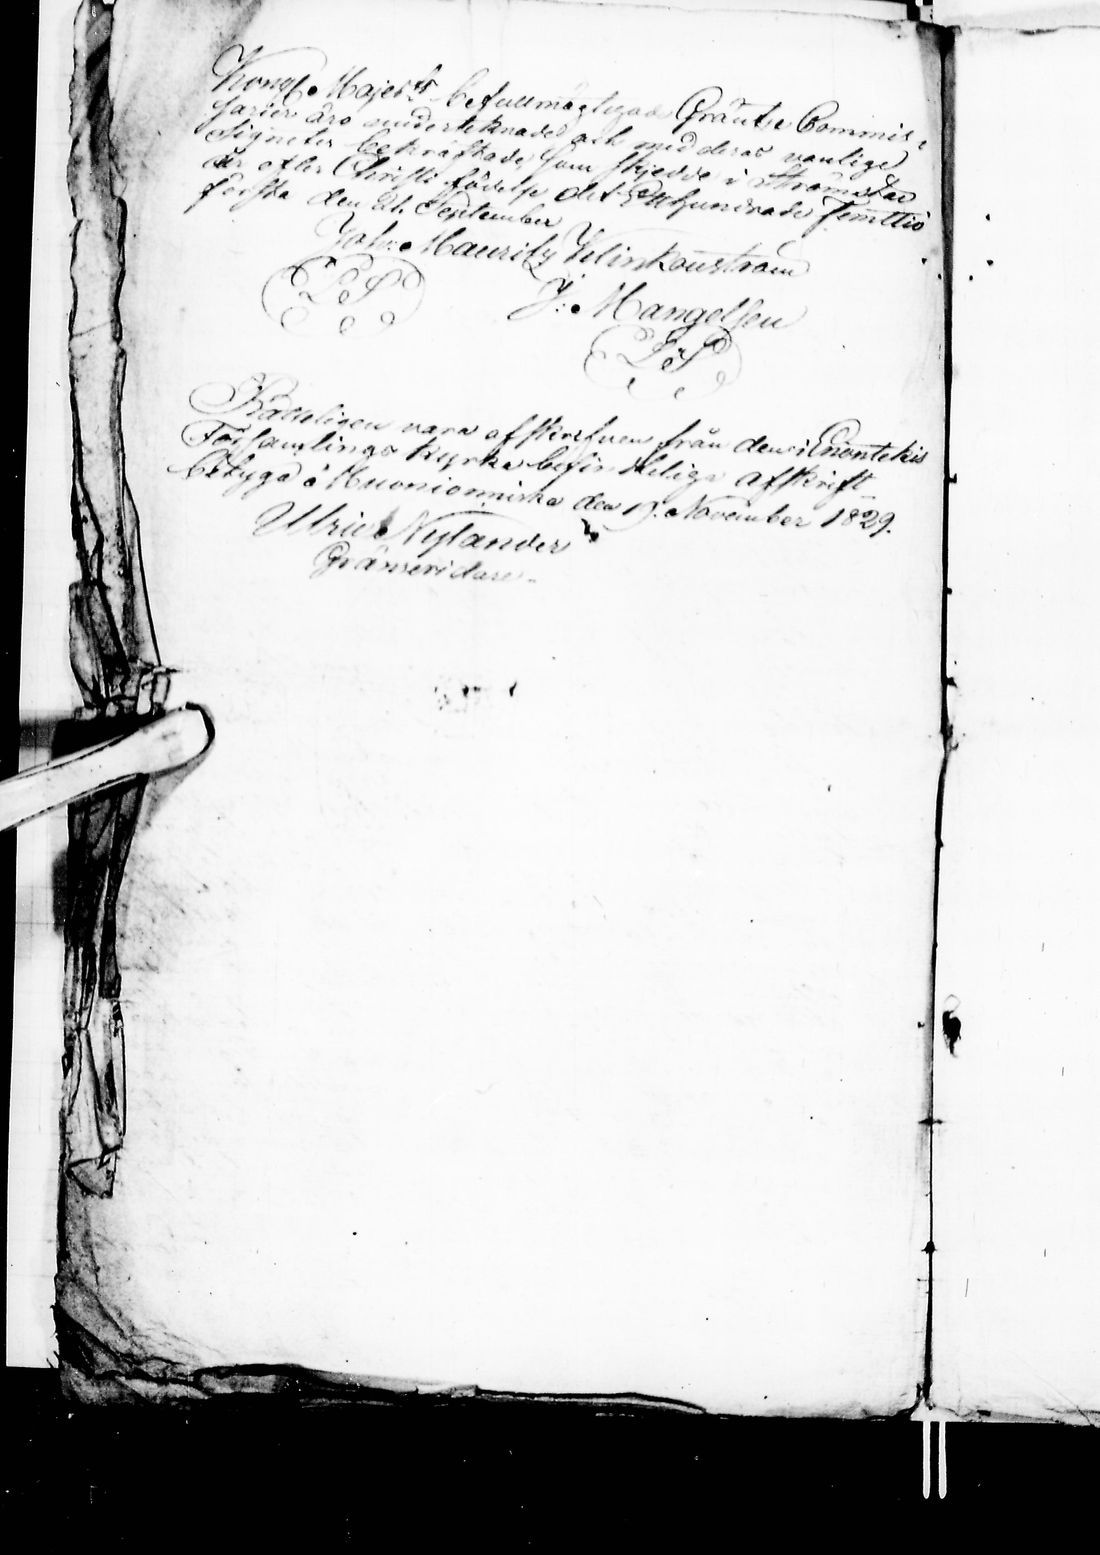 Kongl. Majes:ts befullmägtigade Gränts Commis-
sarier äro underteknade och med deras vanlige
Signeter bekräftade, som skjedde i Strömstad
år efter Christi födelse det Ett Femttio
första den 21. September
Joh: Mauritz Klinkouström
L.S.
J: Mangelsen
L.S.
Rätteligen vara afskrefven från den i Enontekis
Församlings kyrka befinteliga afskrift
betyga i Muonionniska den 19. November 1829.
Ulric Nylander
Gränseridare.